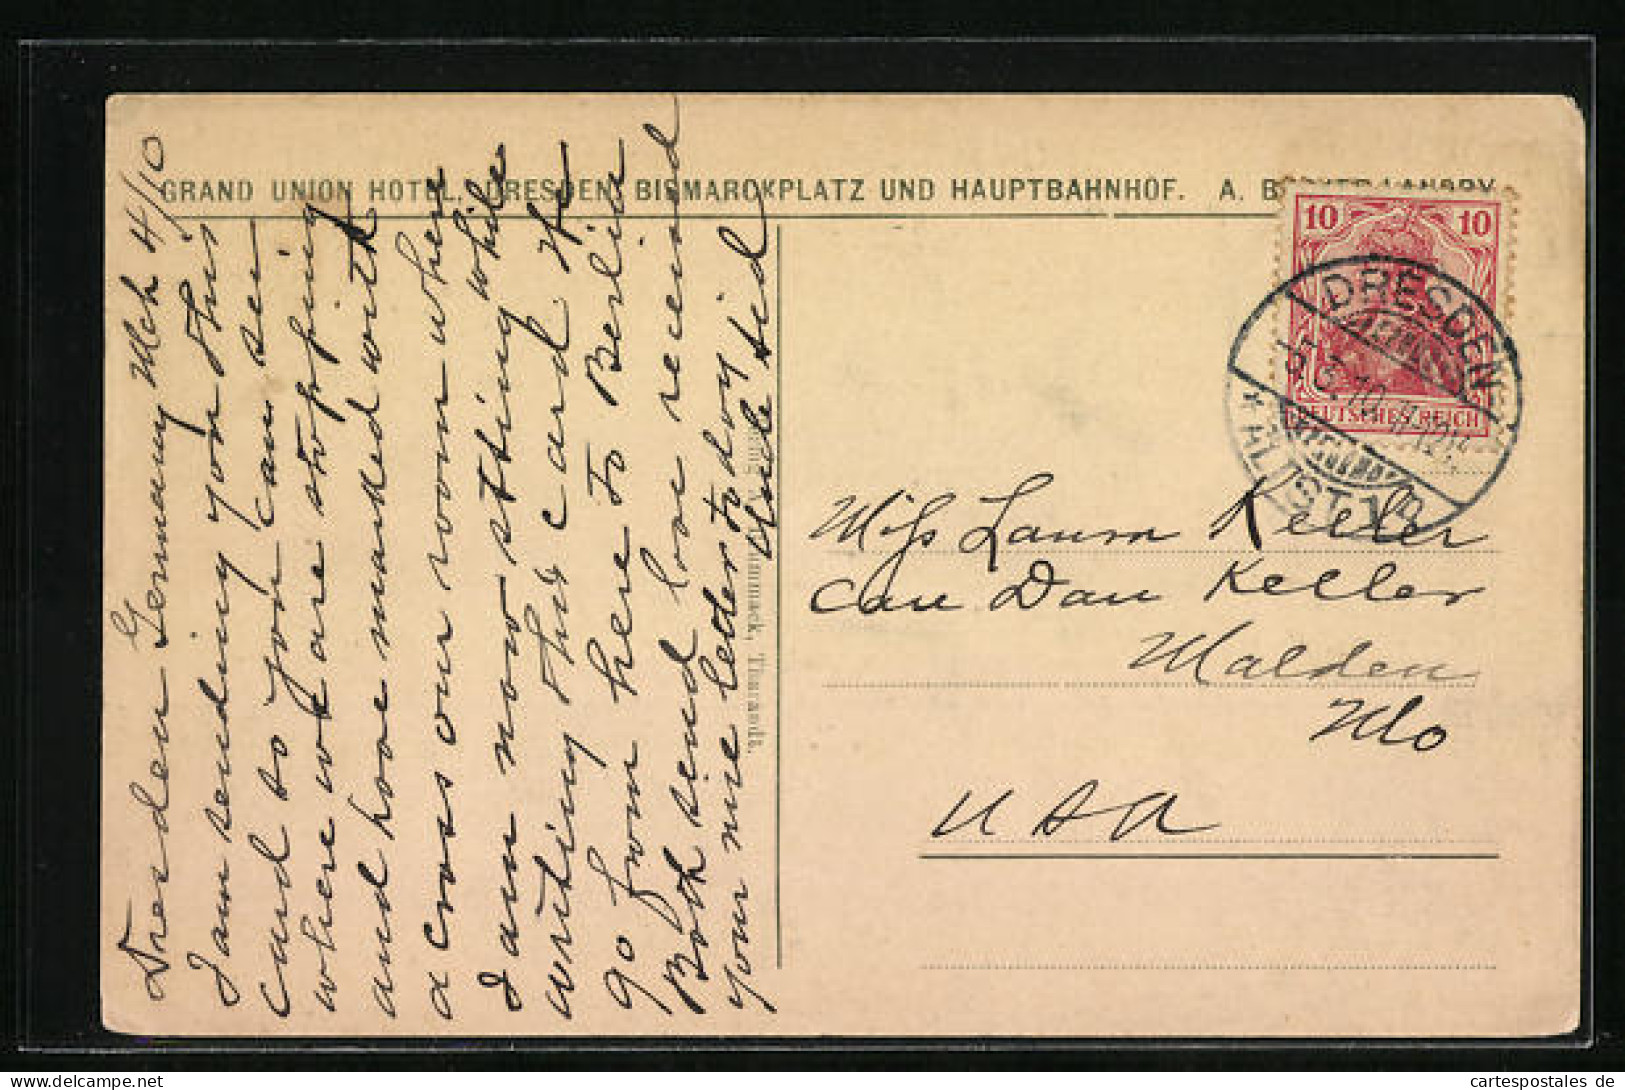 GRAND UNION HOTEL, DRESDEN, BISMARCKPLATZ UND HAUPTBAHNHOF. A.
Dresden Germany Mch 4/10
I am sending you this
card so you can see
where we are stopping
and hove marked with
a cross our room where
I am now sitting while
writing this card We
go from here to Berlin
Both send love received
your nice leder to day
Uncle Sid
Tharandt.
10 10
DEUTSCHES REICH
DRESDEN
* ALTST. 1 *
Miss Laura Keller
Care Dan Keller
Malden
Mo
USA
cartespostales de